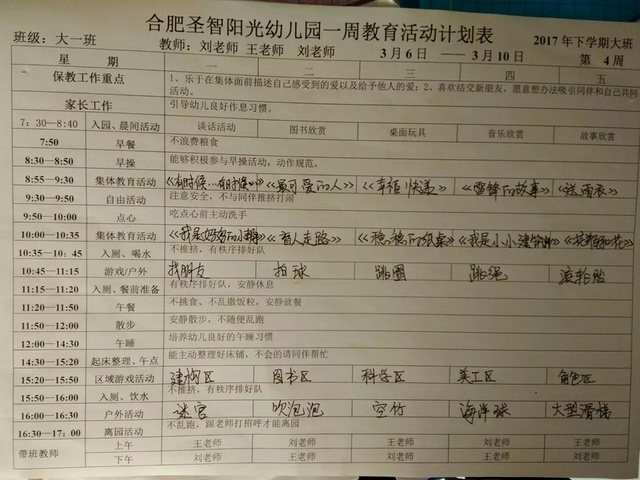 合肥圣智阳光幼儿园一周教育活动计划表
班级：大一班 教师：刘老师 王老师 刘老师 3月6日 —— 3月10日 2017年下学期大班 第 4 周
星 期 一 二 三 四 五
保教工作重点 1、乐于在集体面前描述自己感受到的爱以及给予他人的爱；2、喜欢结交新朋友，愿意想办法吸引同伴和自己共同
活动。
家长工作 引导幼儿良好作息习惯。
7：30—8:40 入园、晨间活动 谈话活动 图书欣赏 桌面玩具 音乐欣赏 故事欣赏
7:50 早餐 不浪费粮食
8:30—8:50 早操 能够积极参与早操活动，动作规范。
8:55—9:30 集体教育活动 《有时候…有时候…》 《最可爱的人》 《幸福快递》 《雷锋的故事》 《送雨衣》
9:30—9:50 自由活动 注意安全，不与同伴推挤打闹
9:50—10:00 点心 吃点心前主动洗手
10:00—10:35 集体教育活动 《我是妈妈的小 《盲人走路》 《稳稳的纸桌》 《我是小小建筑师》
10:35—10：45 入厕、喝水 不推挤，有秩序排好队
10:45—11:15 游戏/户外 找朋友 拍球 跳圈 跳绳 滚轮胎
11:15—11:20 入厕、餐前准备 有秩序排好队，安静休息
11:20—11:50 午餐 不挑食、不乱撒饭粒，安静就餐
11:50—12:00 散步 安静散步，不随便乱跑
12:00—14:30 午睡 培养幼儿良好的午睡习惯
14:30—15:20 起床整理、午点 能主动整理好床铺，不会的请同伴帮忙
15:20—15:50 区域游戏活动 建构区 图书区 科学区 美工区 角色区
15:50—16:00 入厕、饮水 不推挤，有秩序排好队
16:00—16:30 户外活动 迷宫 吹泡泡 空竹 海洋球 大型滑梯
16:30—17：00 离园活动 不乱跑，跟老师打招呼才能离园
带班教师 上午 王老师 刘老师 王老师 刘老师 王老师
下午 刘老师 王老师 刘老师 王老师 刘老师